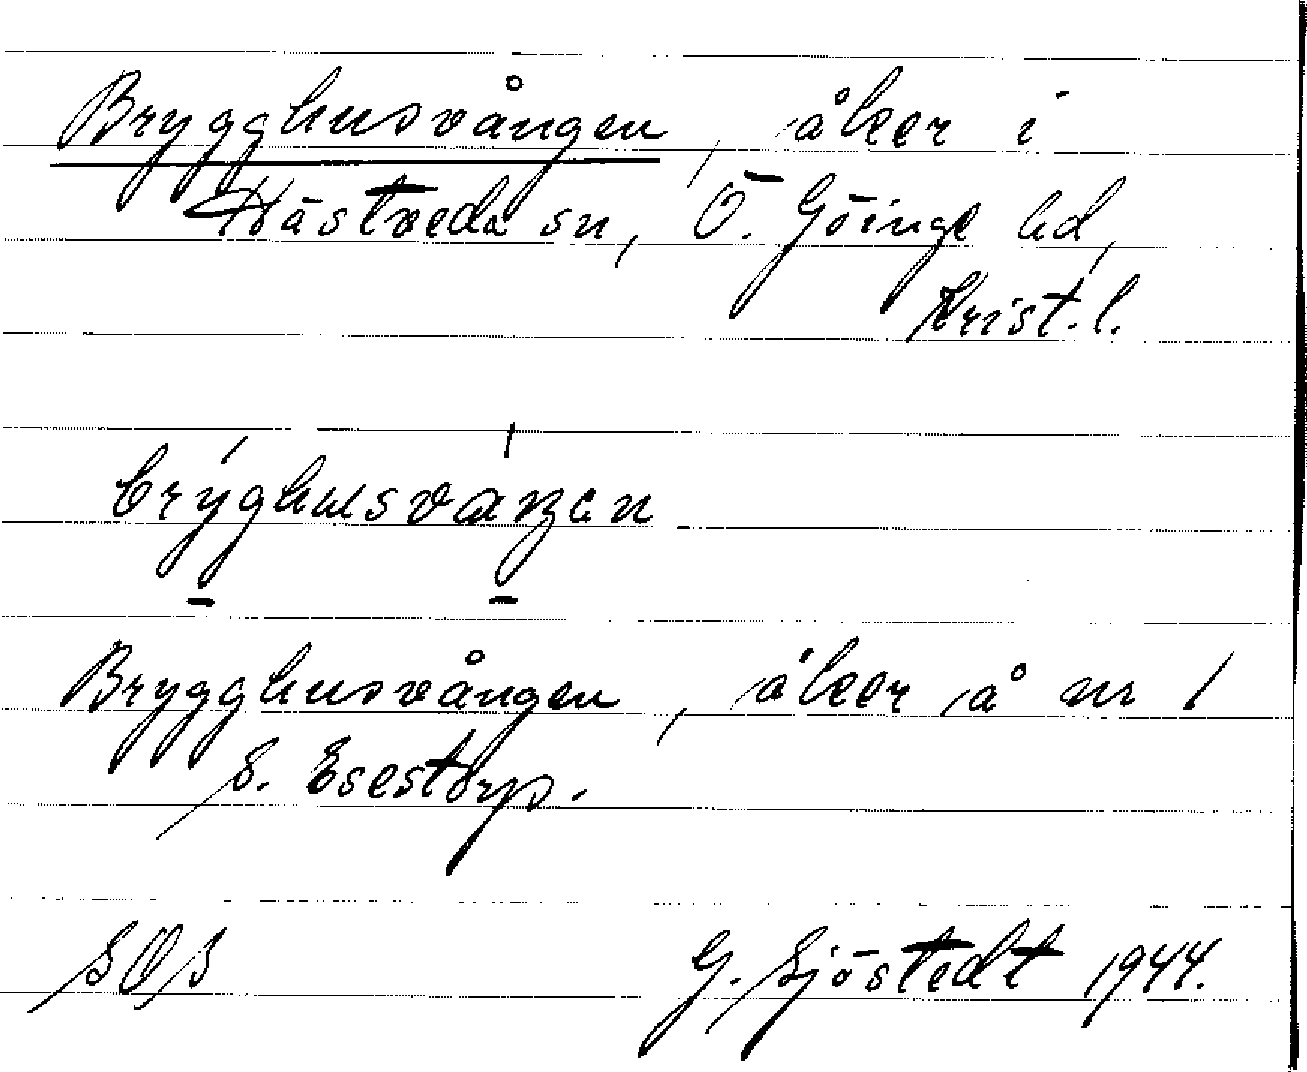 Brygghusvången, åker i
Hästveda sn, Ö. Göinge hd,
Krist. l.
brýghusváŋen
Brygghusvången, åker å nr 1
S. Esestorp.
SOS
G. Sjöstedt 1944.